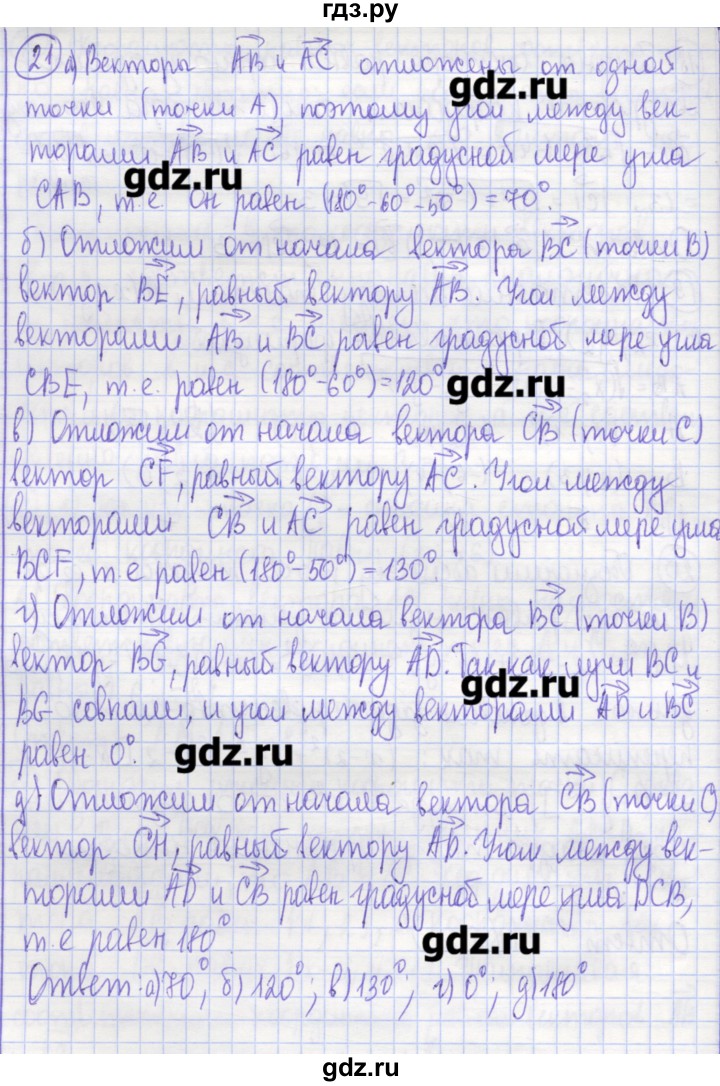 гдз.ру
21 а) Векторы AB и AC отложены от одной
gdz.ru
точки (точки А), поэтому угол между век-
торами AB и AC равен градусной мере угла
gdz.ru
CAB, т.е он равен (180°-60°-50°)=70°.
б) Отложим от начала вектора BC (точки В)
вектор BE, равный вектору AB. Угол между
векторами AB и BC равен градусной мере угла
CBE, т.е. равен (180°-60°)=120°
gdz.ru
в) Отложим от начала вектора CB (точки С)
вектор CF, равный вектору AC. Угол между
векторами CB и AC равен градусной мере угла
BCF, т.е равен (180°-50°)=130°.
г) Отложим от начала вектора BC (точки В)
вектор BG, равный вектору AD. Так как лучи BC и
gdz.ru
BG совпали, и угол между векторами AD и BC
равен 0°.
gdz.ru
д) Отложим от начала вектора CB (точки С)
вектор CH, равный вектору AD. Угол между век-
торами AD и CB равен градусной мере угла DCB,
т.е равен 180°.
gdz.ru
Ответ: а) 70°; б) 120°; в) 130°; г) 0°; д) 180°
gdz.ru